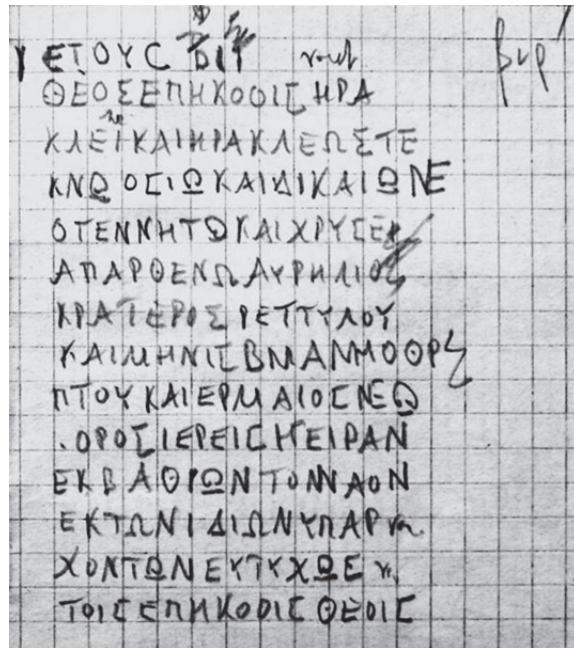 ΕΤΟΥC
ΘΕΟΣΕΠΗΚΟΟΙCΗΡΑ
ΚΛΕΙΚΑΙΗΡΑΚΛΕΩΣΤΕ
ΚΝΩΟCΙΩΚΑΙΔΙΚΑΙΩΝΕ
ΟΤΕΝΝΗΤΩΚΑΙΧΡΥCΕ
ΑΠΑΡΘΕΝΩΑΥΡΗΛΙΟΣ
ΚΡΑΤΕΡΟΣ ΡΕΤΤΥΛΟΥ
ΚΑΙΜΗΝΙC
ΠΤΟΥΚΑΙΕΡΜΑΙΟCΝΕΩ
.ΟΡΟCΙΕΡΕΙCΗΓΕΙΡΑΝ
ΕΚΒΑΘΡΩΝΤΟΝΝΑΟΝ
ΕΚΤΩΝΙΔΙΩΝΥΠΑΡ
ΧΟΝΤΩΝΕΥΤΥΧΩC
ΤΟΙCΕΠΗΚΟΟΙCΘΕΟΙC